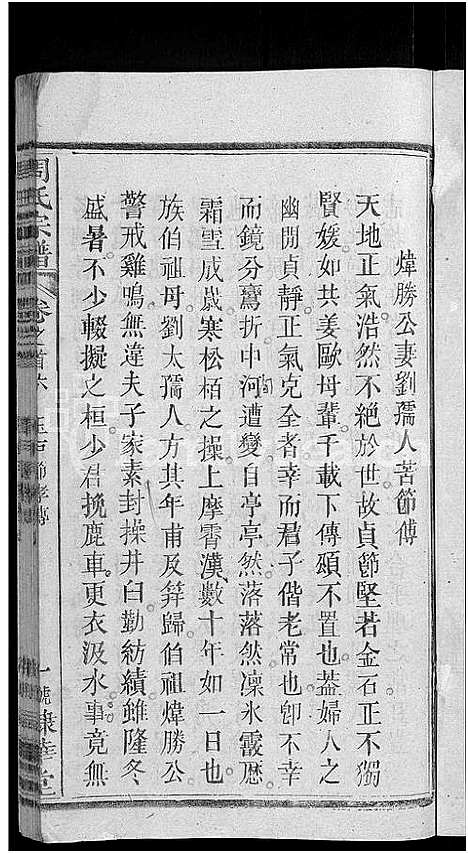 煒勝公妻劉孺人苦節傳
天地正氣浩然不絕於世故貞節堅若金石正不獨
賢媛如共姜歐母輩千載下傳頌不置也蓋婦人之
幽閒貞靜正氣克全者幸而君子偕老常也卽不幸
而鏡分鸞折中河遭變自亭亭然落落然凜氷霰歷
霜雪成歲寒松栢之操上摩霄漢數十年如一日也
族伯祖母劉太孺人方其年甫及笄歸伯祖煒勝公
警戒雞鳴無違夫子家素封操井臼勤紡績雖隆冬
盛暑不少輟擬之桓少君挽鹿車更衣汲水事竟無
周氏宗譜 卷之首六